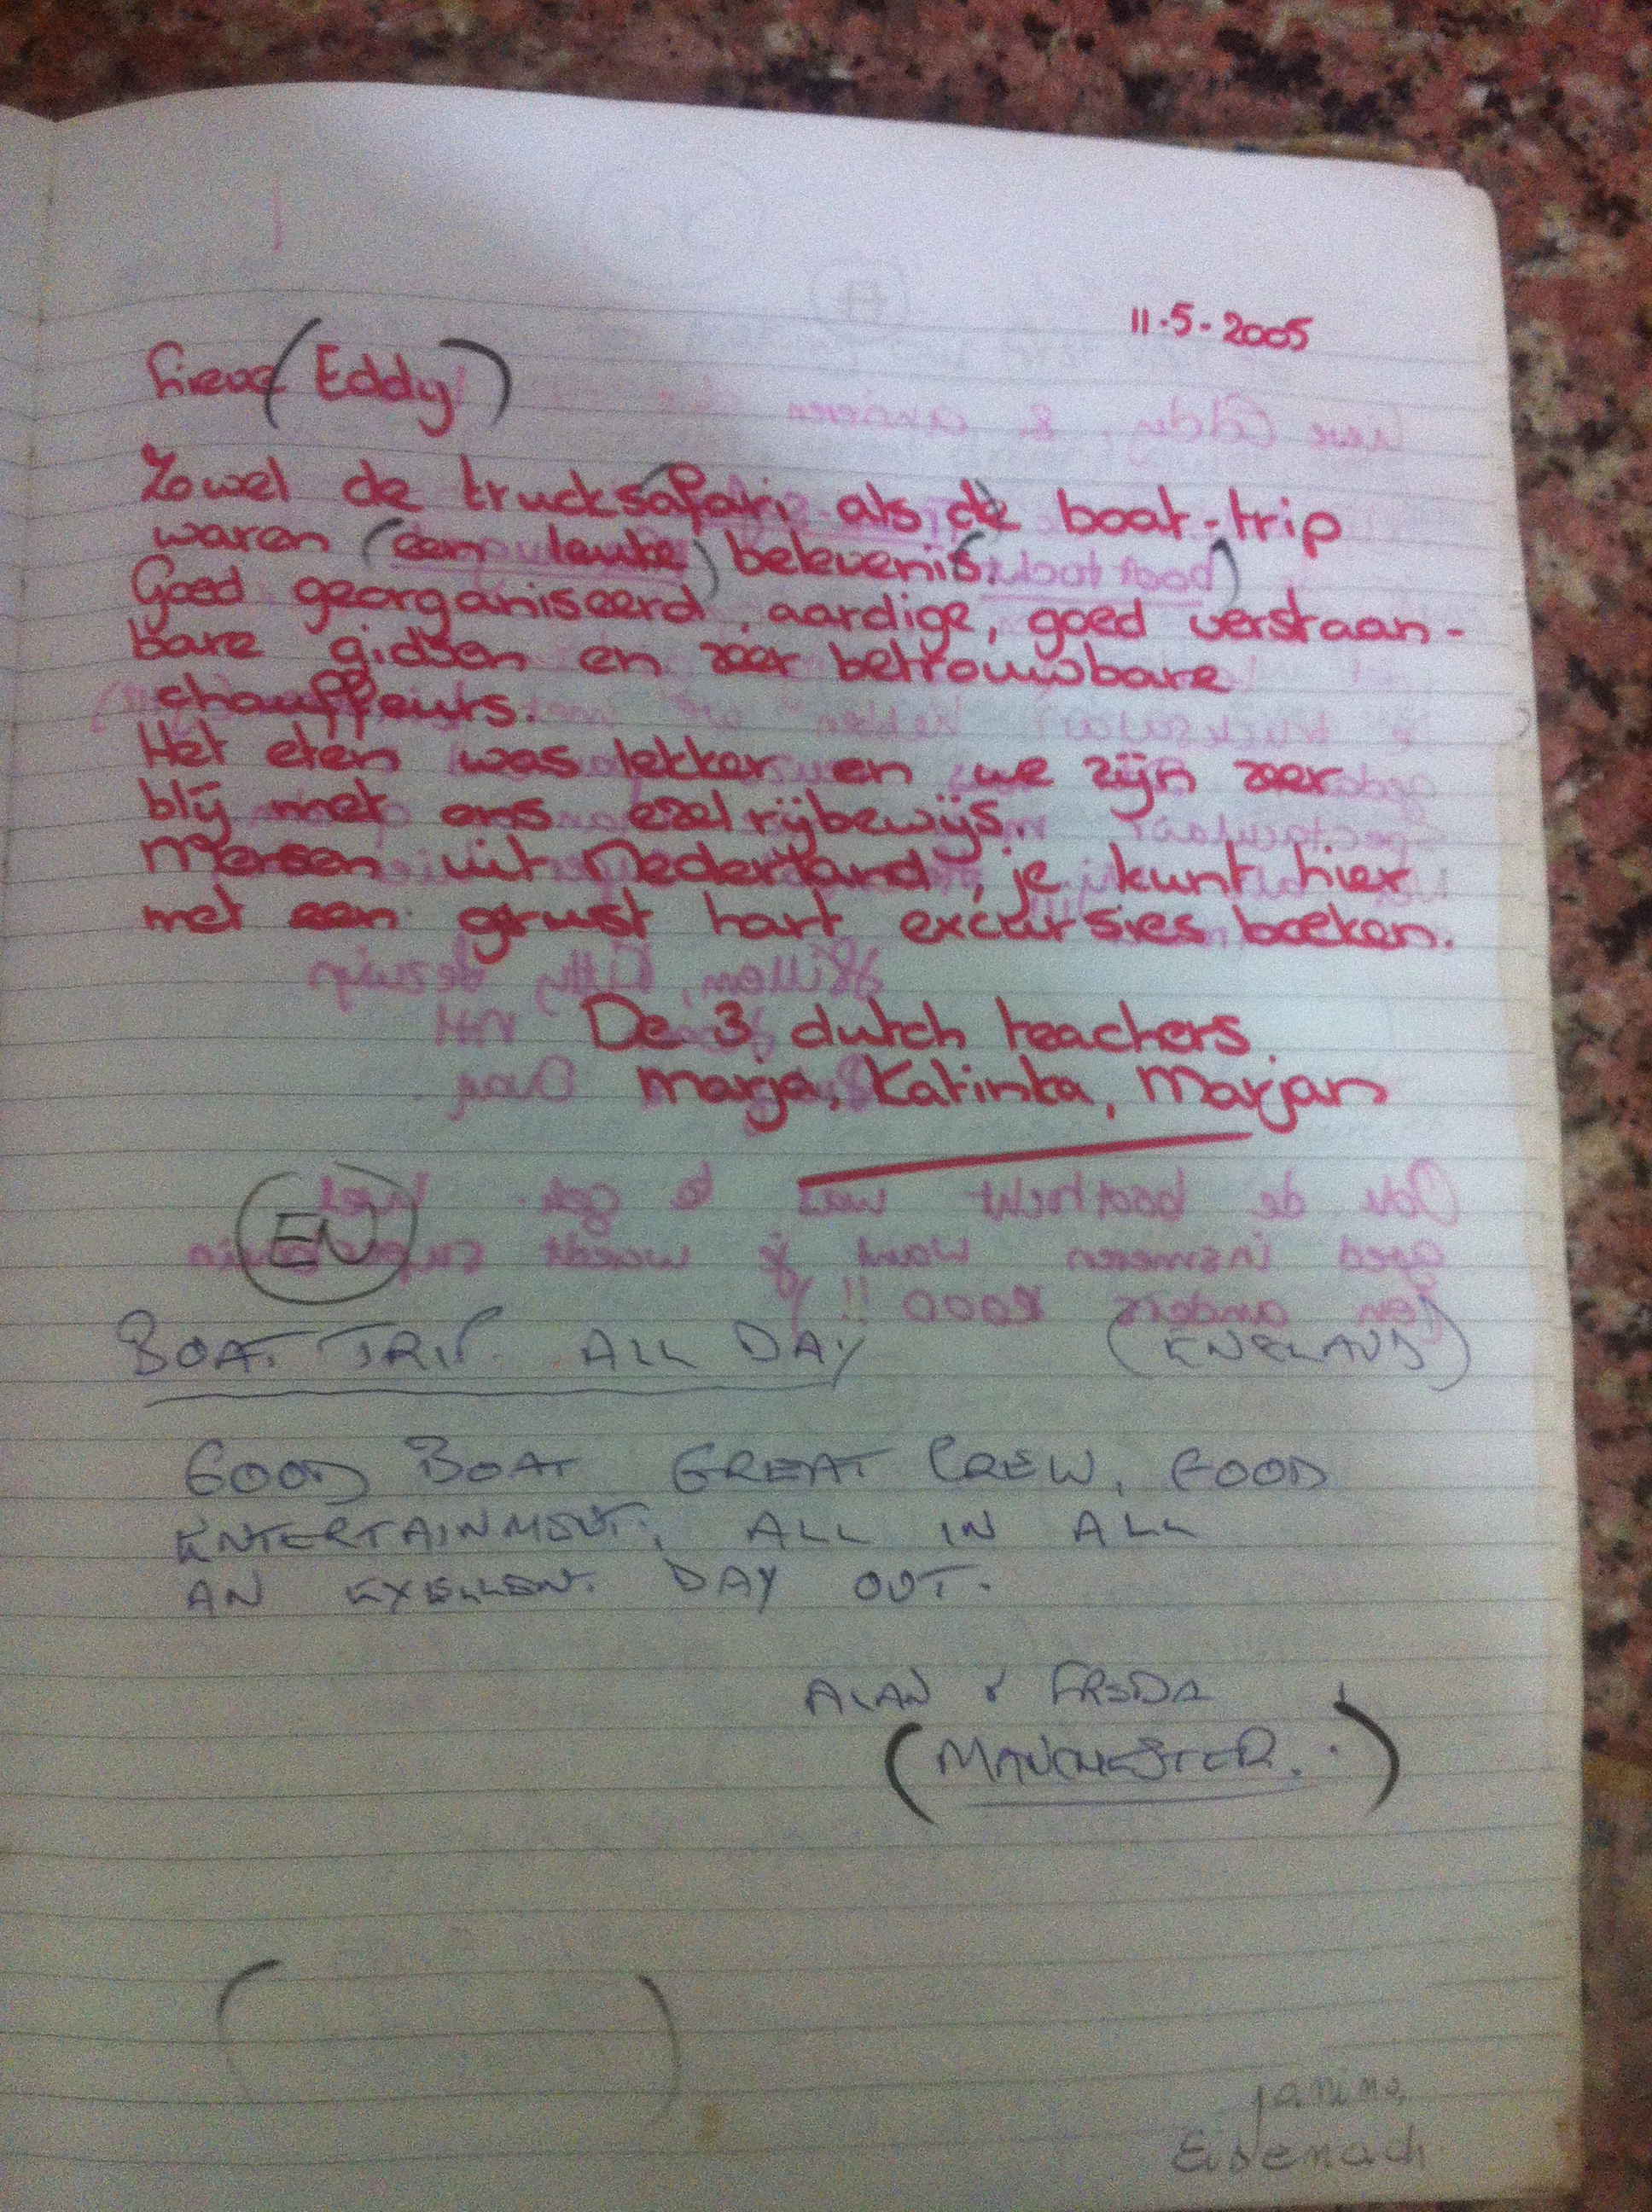 11-5-2005
Lieve (Eddy)
Zowel de trucksafari, als de boat-trip
waren (een leuke) belevenis.
Goed georganiseerd, aardige, goed verstaan-
bare gidsen en zeer betrouwbare
chauffeurs.
Het eten was lekker en we zijn zeer
blij met ons ezelrijbewijs.
Mensen uit Nederland, je kunt hier
met een gerust hart excursies boeken.
De 3 dutch teachers.
Marja, Katinka, Marjan
EN
BOAT TRIP. ALL DAY (ENGLAND)
GOOD BOAT GREAT CREW, GOOD
ENTERTAINMENT, ALL IN ALL
AN EXELLENT DAY OUT.
ALAN & FREDA
(MANCHESTER.)
Janine,
Eisenach